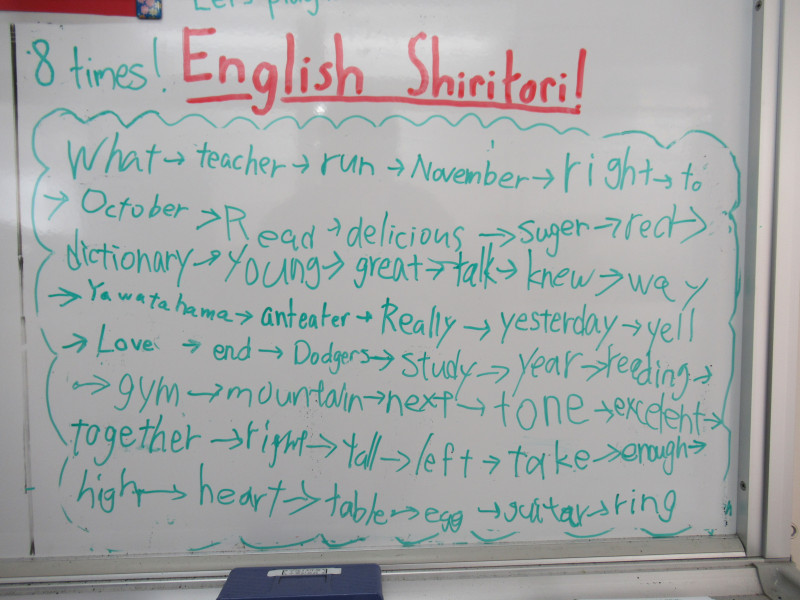 Let's play
8 times! English Shiritori!
What → teacher → run → November → right → to
→ October → Read → delicious → suger → red →
dictionary → young → great → talk → knew → way
→ Yawatahama → anteater → Really → yesterday → yell
→ Love → end → Dodgers → study → year → reeding →
→ gym → mountain → next → tone → excelent →
together → right → tall → left → take → enough →
high → heart → table → egg → → ring